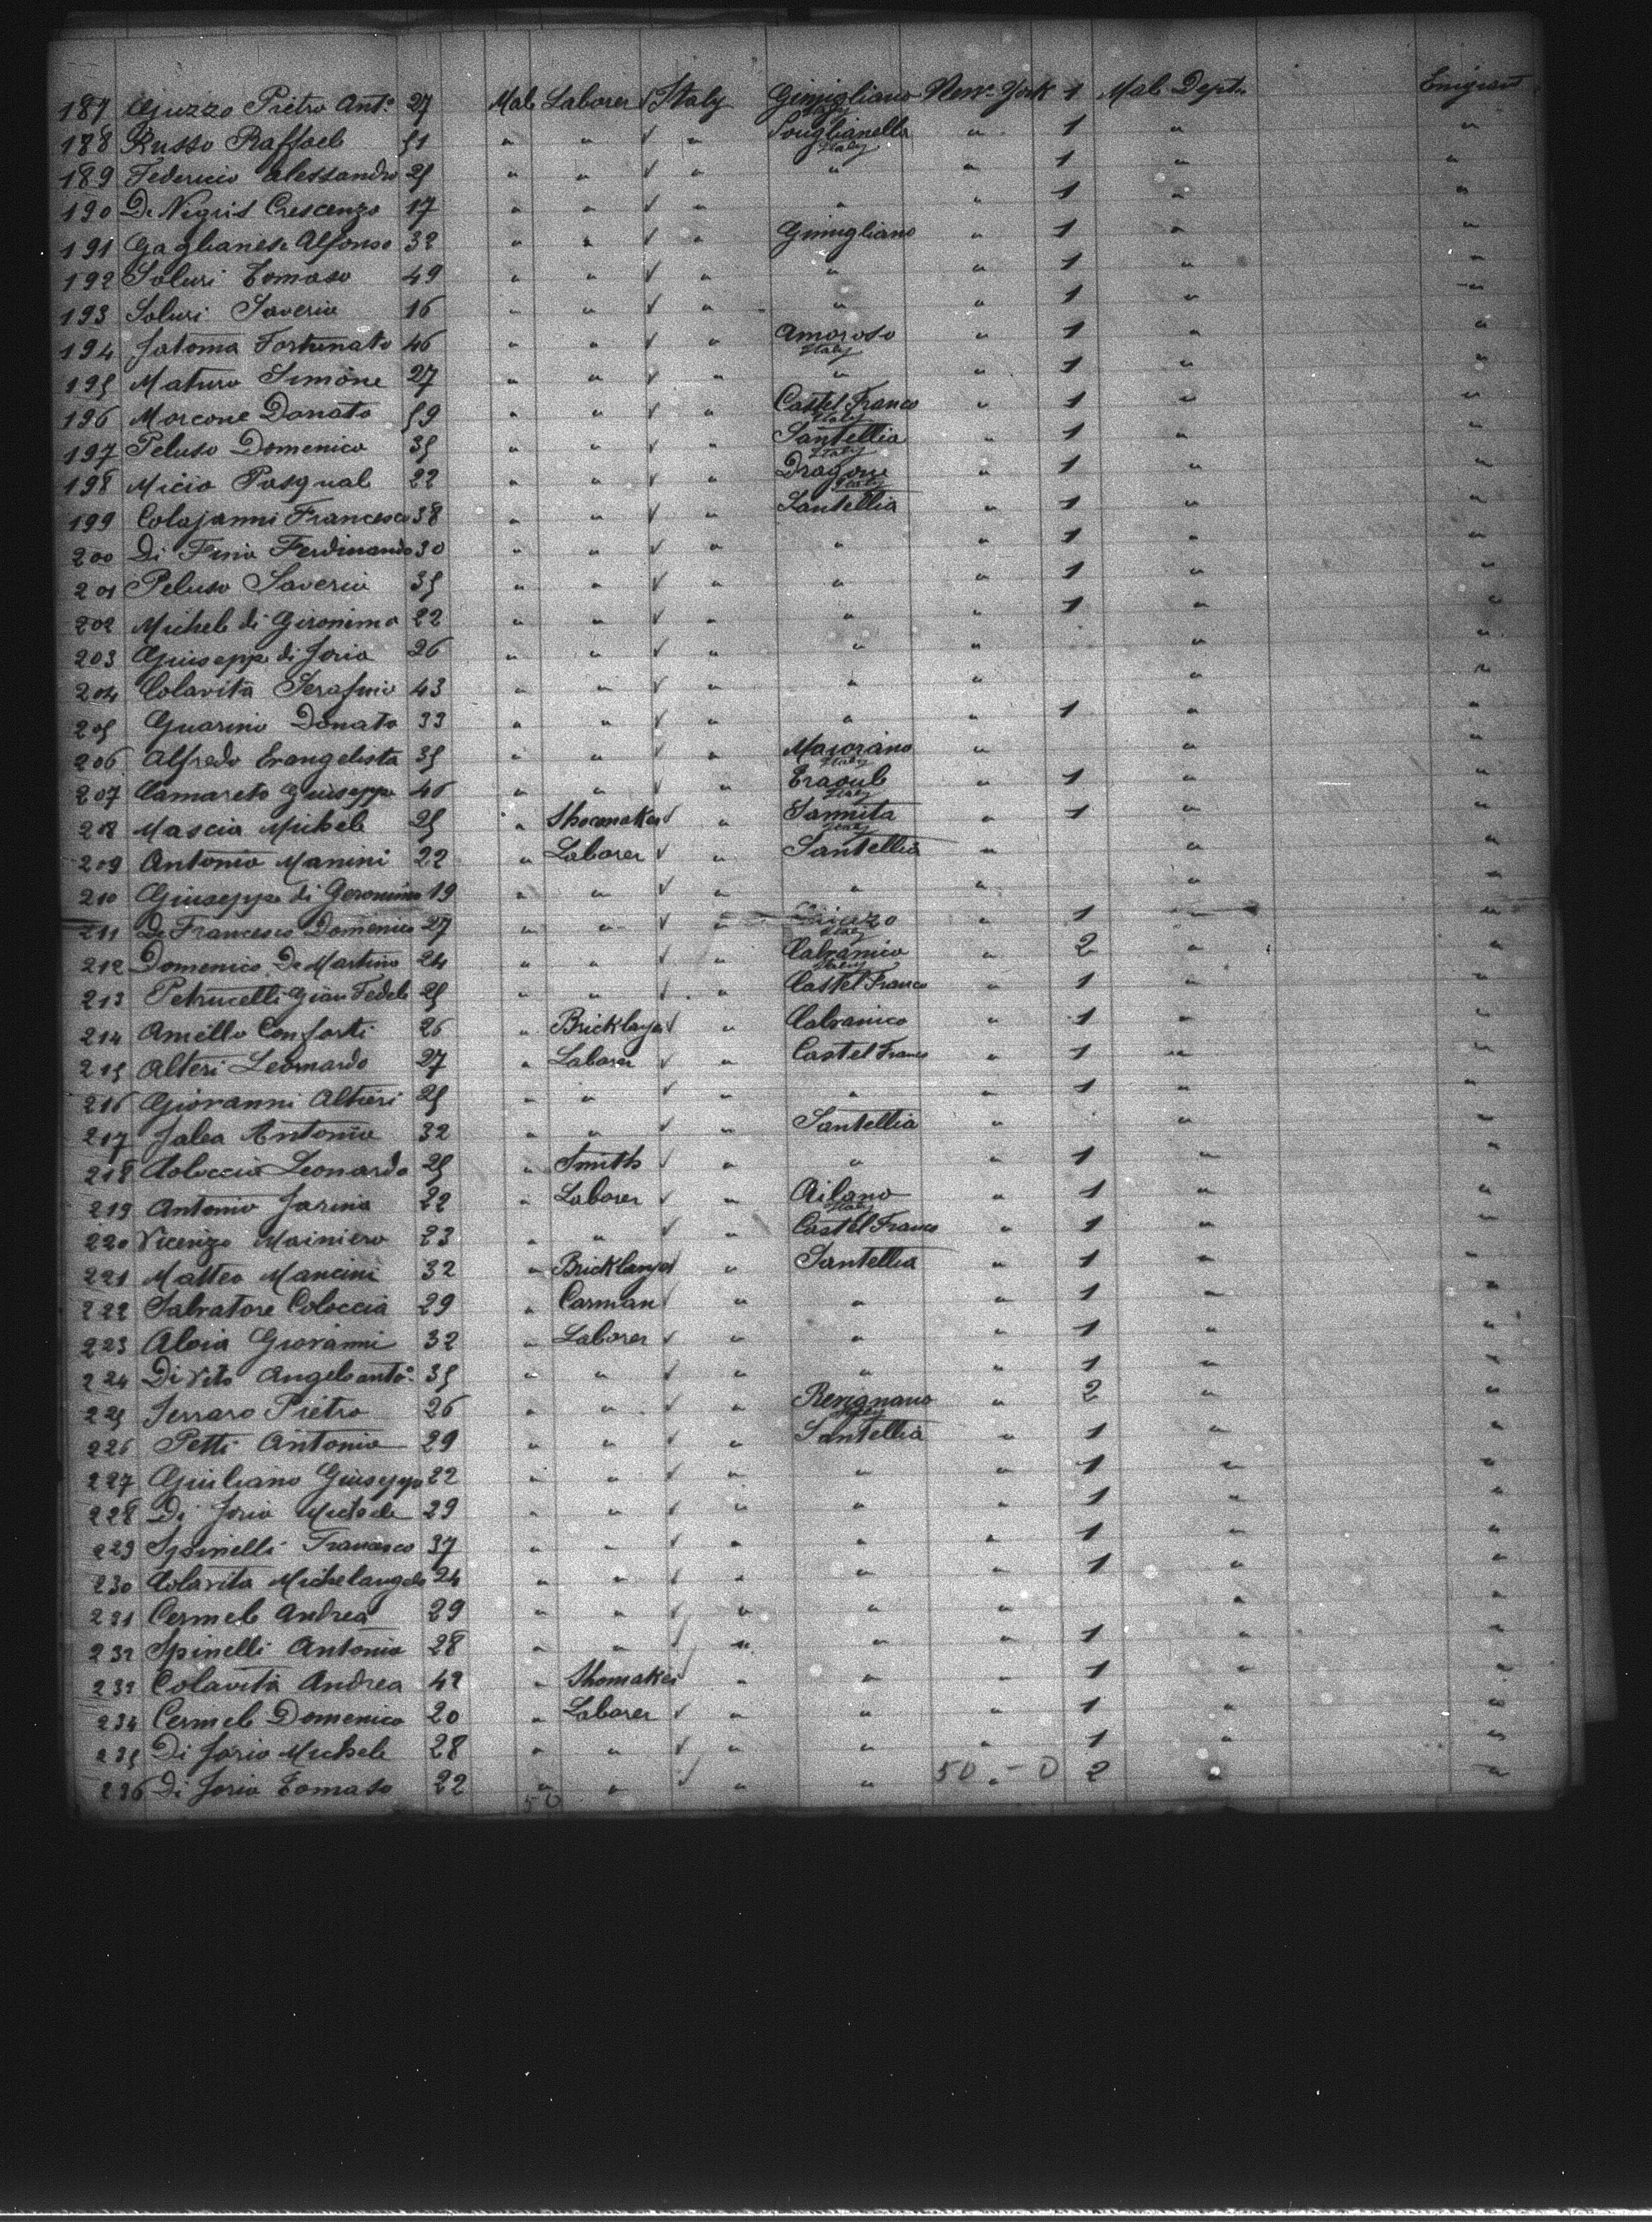 187 Guzzo Pietro Ant.o 27 Male Laborer √ Italy Gimigliano Italy New-York 1 Male Dept. Emigrant
188 Russo Raffaele 51 " " √ " Souglianella Italy " 1 " "
189 Federicio Alessandro 25 " " √ " " " 1 " "
190 De Negris Crescenzo 17 " " √ " " " 1 " "
191 Gaglianese Alfonso 32 " " √ " Gimigliano " 1 " "
192 Soluri Tomaso 49 " " √ " " " 1 " "
193 Soluri Saverio 16 " " √ " " " 1 " "
194 Jatoma Fortunato 46 " " √ " Amoroso Italy " 1 " "
195 Maturo Simone 27 " " √ " " " 1 " "
196 Morcone Donato 59 " " √ " Castel Franco Italy " 1 " "
197 Peluso Domenico 35 " " √ " Santellia Italy " 1 " "
198 Micio Pasquale 22 " " √ " Dragone Italy " 1 " "
199 Colajanni Francesco 38 " " √ " Santellia " 1 " "
200 Di Finio Ferdinando 30 " " √ " " " 1 " "
201 Peluso Saverio 35 " " √ " " " 1 " "
202 Michele di Gironimo 22 " " √ " " " 1 " "
203 Giuseppe di Jorio 26 " " √ " " " " "
204 Colavita Serafino 43 " " √ " " " " "
205 Guarino Donato 33 " " √ " " " 1 " "
206 Alfredo Evangelista 35 " " √ " Maiorano Italy " " "
207 Camareto Giuseppe 46 " " √ " Eraoule Italy " 1 " "
208 Mascia Michele 25 " Shoemaker √ " Sannita Italy " 1 " "
209 Antonio Manini 22 " Laborer √ " Santellia " " "
210 Giuseppe di Geronimo 19 " " √ " " " " "
211 De Francesco Domenico 27 " " √ " Italy " 1 " "
212 Domenico De Martino 24 " " √ " Calvanico Italy " 2 " "
213 Petrucelli Gian Fedele 25 " " √ " Castel Franco " 1 " "
214 Aniello Conforti 26 " Bricklayer √ " Calvanico " 1 " "
215 Alteri Leonardo 27 " Laborer √ " Castel Franco " 1 " "
216 Giovanni Altieri 25 " " √ " " " 1 " "
217 Jalea Antonio 32 " " √ " Santellia " " "
218 Coloccia Leonardo 25 " Smith √ " " " 1 " "
219 Antonio Jarino 22 " Laborer √ " Ailano Italy " 1 " "
220 Vicenzo Mainiero 23 " " √ " Castel Franco " 1 " "
221 Matteo Mancini 32 " Bricklayer √ " Santellia " 1 " "
222 Salvatore Coloccia 29 " Carman √ " " " 1 " "
223 Aloia Giovanni 32 " Laborer √ " " " 1 " "
224 Di Vito Angelo anto. 35 " " √ " " " 1 " "
225 Ferraro Pietro 26 " " √ " Revignano Italy " 2 " "
226 Petti Antonio 29 " " √ " Santellia " 1 " "
227 Giuliano Giuseppe 22 " " √ " " " 1 " "
228 Di Jorio Michele 29 " " √ " " " 1 " "
229 Spinelli Francesco 37 " " √ " " " 1 " "
230 Colavita Michelangelo 24 " " √ " " " 1 " "
231 Cermele Andrea 29 " " √ " " " " "
232 Spinelli Antonio 28 " " √ " " " 1 " "
233 Colavita Andrea 42 " Shomaker √ " " " 1 " "
234 Cermele Domenico 20 " Laborer √ " " " 1 " "
235 Di Jorio Michele 28 " " √ " " " 1 " "
236 Di Jorio Tomaso 22 " " √ " " 50 " - 0 2 " "
50